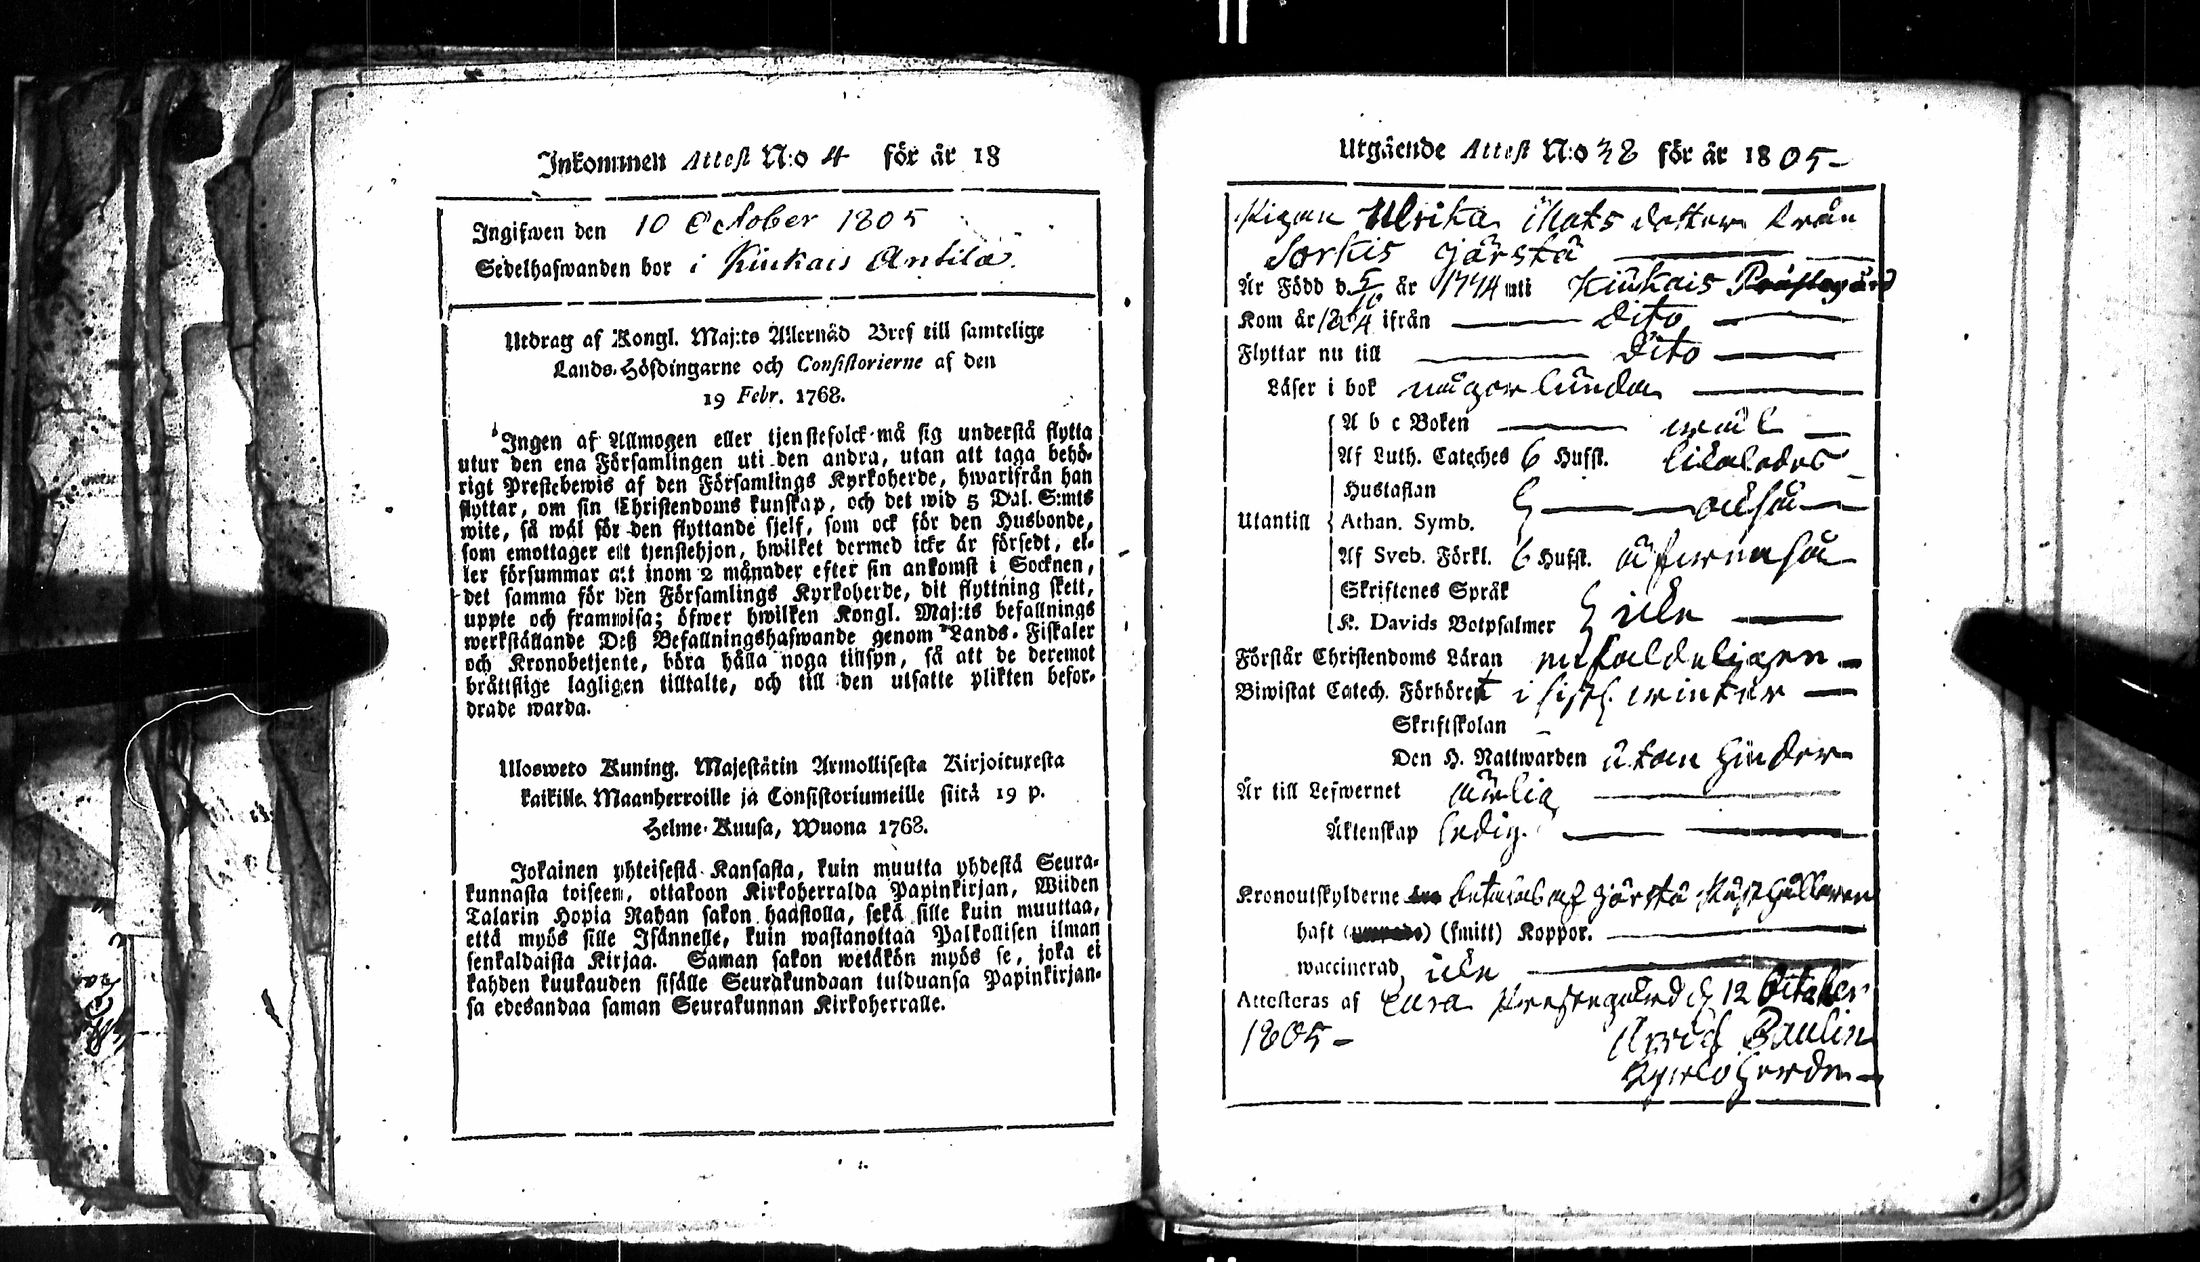 Inkommen Attest N:o 4 för år 18
Ingifwen den 10 October 1805
Sedelhafwanden bor i Kiukais Antila.
Utdrag af Kongl. Maj:ts Allernåd Bref till samtelige
Lands-Höfdingarne och Consistorierne af den
19 Febr. 1768.
Ingen af Allmogen eller tjenstefolck må sig understå flytta
utur den ena Församlingen uti den andra, utan att taga behö-
rigt Prestebewis af den Församlings Kyrkoherde, hwarifrån han
flyttar, om sin Christendoms kunskap, och det wid 5 Dal. S:mts
wite, så wäl för den flyttande sjelf, som ock för den Husbonde,
som emottager ett tjenstehjon, hwilket dermed icke är försedt, el-
ler försummar att inom 2 månader efter sin ankomst i Socknen,
det samma för den Församlings Kyrkoherde, dit flyttning skett,
uppte och framwisa; öfwer hwilken Kongl. Maj:ts befallnings
werkställande Deß Befallningshafwande genom Lands-Fiskaler
och Kronobetjente, böra hålla noga tillsyn, så att de deremot
bråttslige lagligen tilltalte, och till den utsatte plikten befor-
drade warda.
Ulosweto Kuning. Majestätin Armollisesta Kirjoituxesta
kaikille Maanherroille ja Consistoriumeille siitä 19 p.
Helme-Kuusa, Wuona 1768.
Jokainen yhteisestä Kansasta, kuin muutta yhdestä Seura-
kunnasta toiseen, ottakoon Kirkoherralda Papinkirjan, Wiiden
Talarin Hopia Rahan sakon haastolla, sekä sille kuin muuttaa,
että myös sille Isännelle, kuin wastanottaa Palkollisen ilman
senkaldaista Kirjaa. Saman sakon wetäkön myös se, joka ei
kahden kuukauden sisälle Seurakundaan tulduansa Papinkirjan-
sa edesandaa saman Seurakunnan Kirkoherralle.
Utgående Attest N:o 38 för år 1805-
Pigan Ulrika Mats dotter från
Sorkis Järstä
Är Född d. 5/10 år 1774 uti Kiukais Prästegård
Kom år 1804 ifrån Dito
Flyttar nu till Dito
Läser i bok någorlunda
A b c Boken wäl
Af Luth. Cateches 6 Hufst. likaledes
Hustaflan också
Utantill Athan. Symb.
Af Sveb. Förkl. 6 Hufst. äfwenså
Skriftenes Språk
K. Davids Botpsalmer icke
Förstår Christendoms Läran enfaldeligen
Biwistat Catech. Förhöret i sistl. winter
Skriftskolan
Den H. Nattwarden utan hinder
Är till Lefwernet ärlig
Äktenskap ledig.
Kronoutskylderne betalas af Järstä Rusthållaren
haft (smitt) Koppor.
waccinerad icke
Attesteras af Eura Prestegård d. 12 October
1805- Arvid Paulin
Kyrkoherde